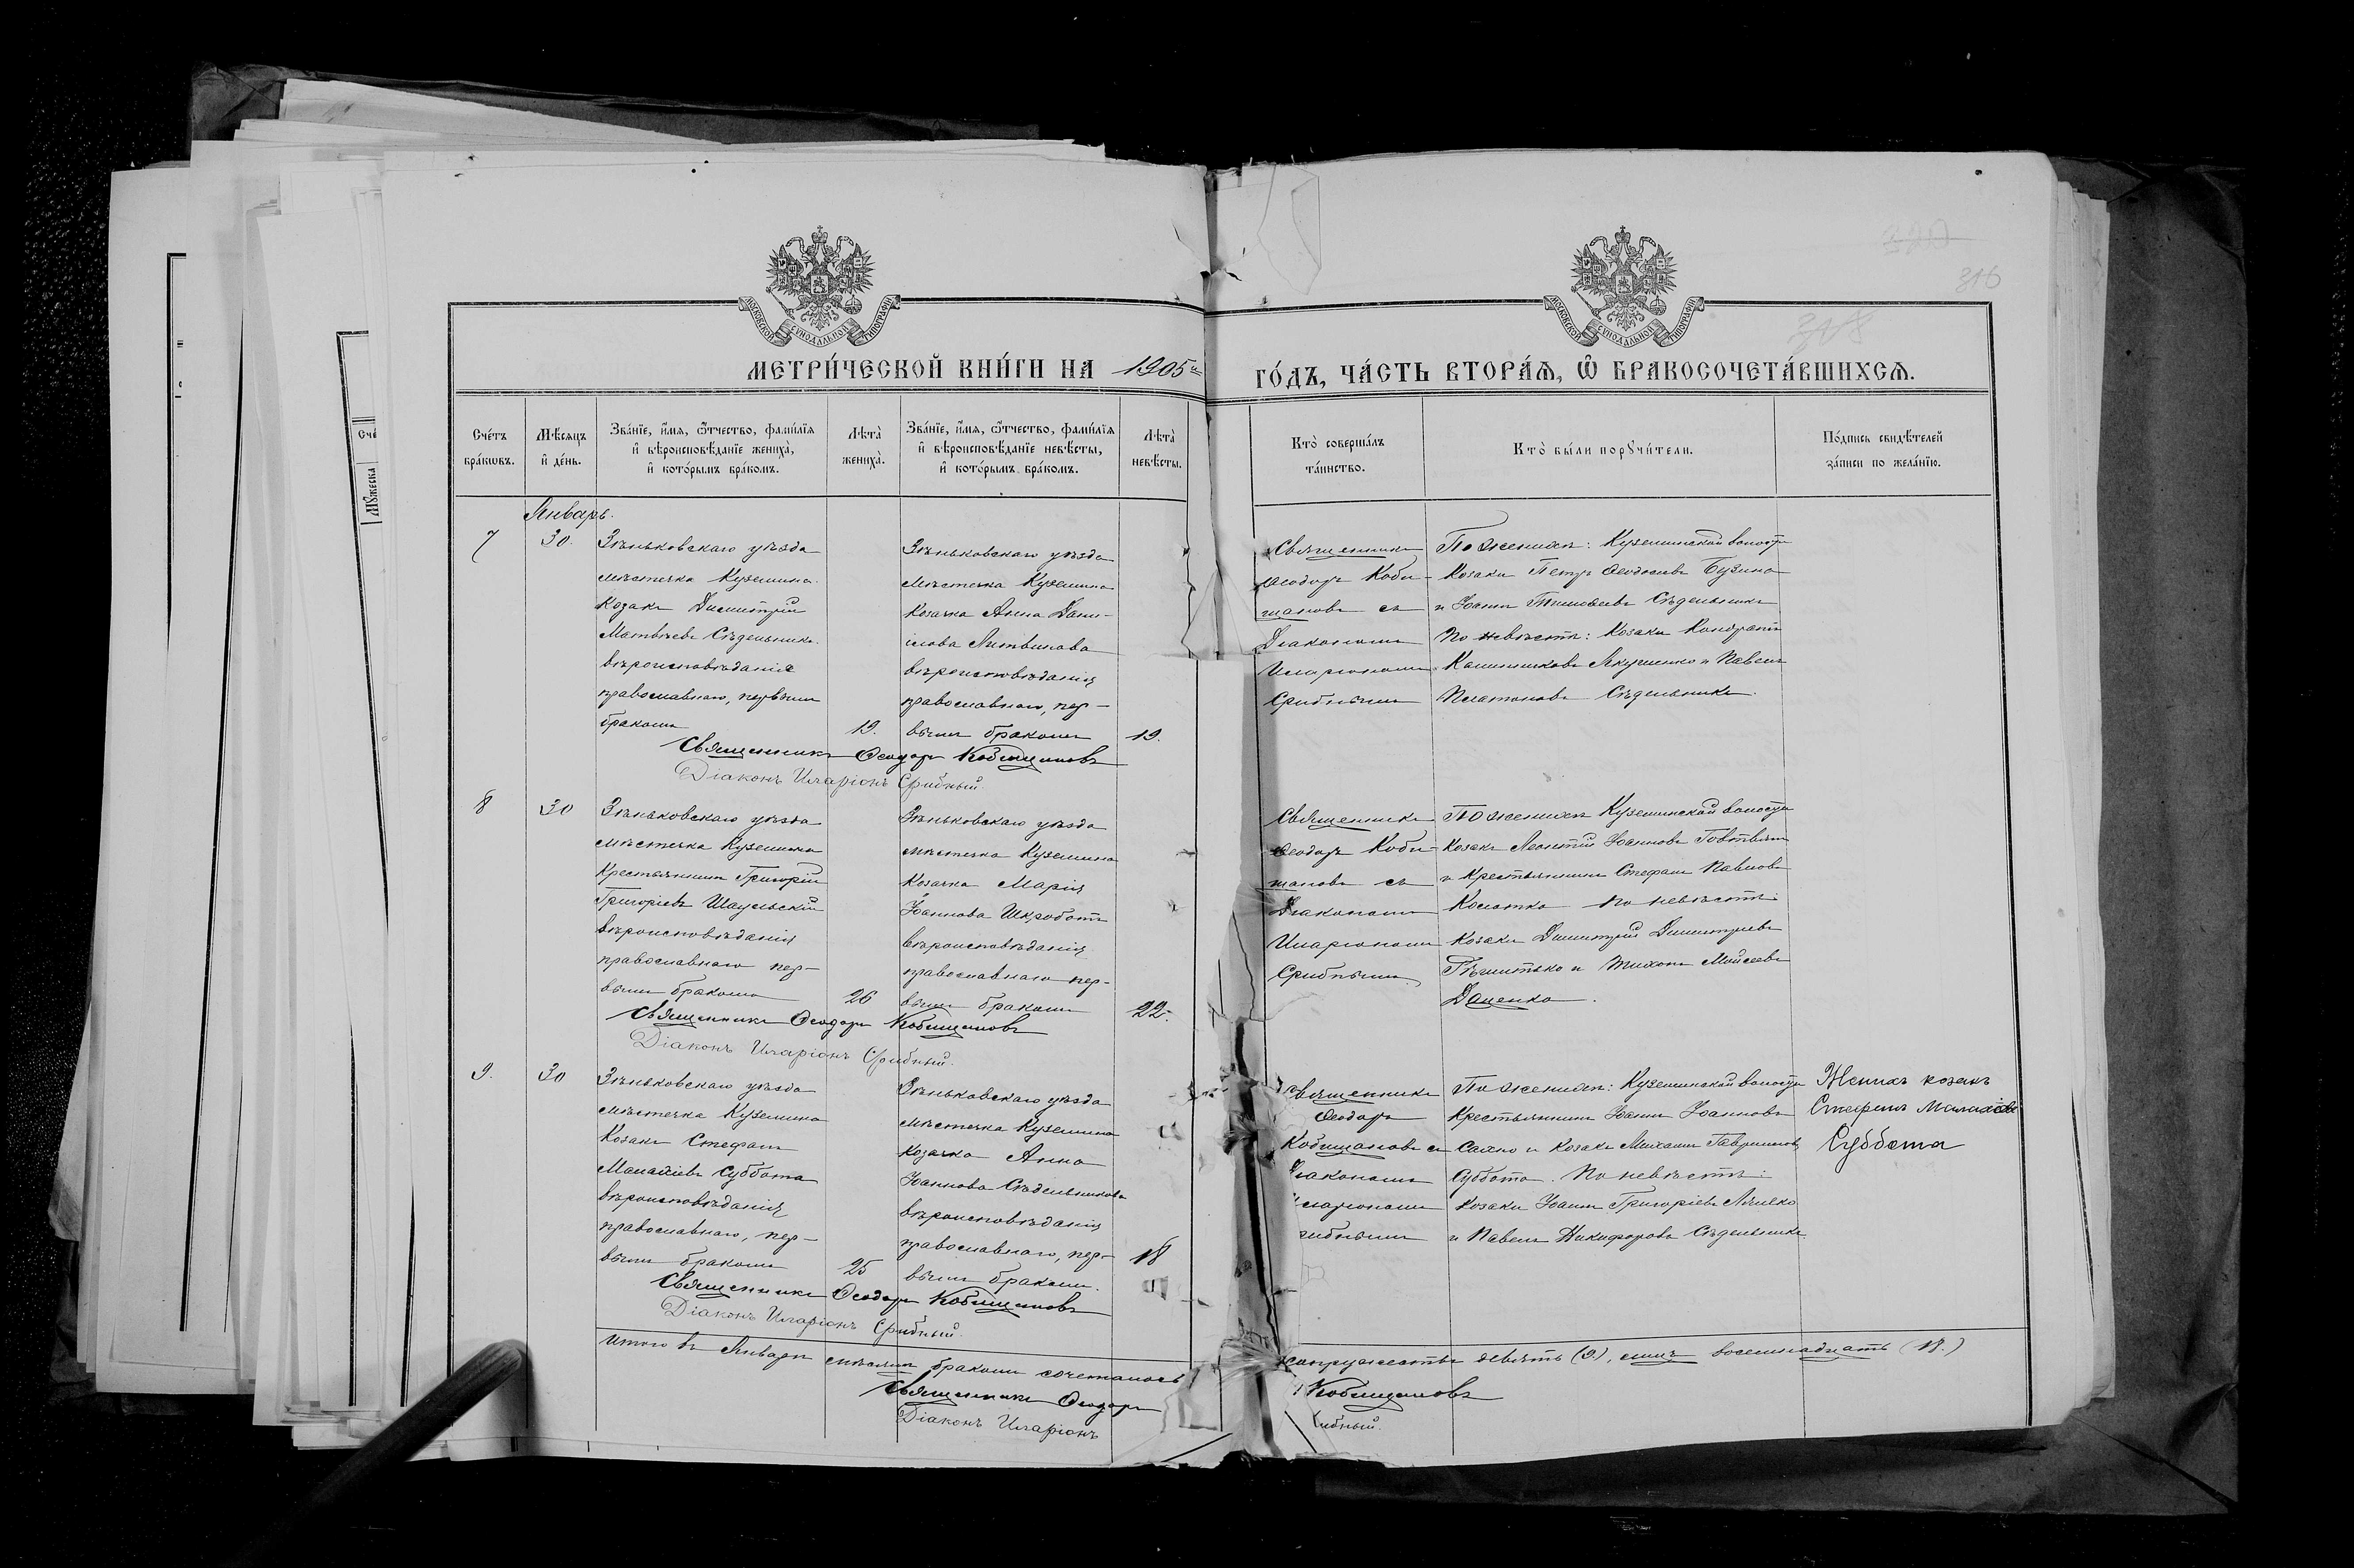 МОСКОВСКОЙ СУНОДАЛЬНОЙ ТИПОГРАФІИ
МОСКОВСКОЙ СУНОДАЛЬНОЙ ТИПОГРАФІИ
316
МЕТРИ́ЧЕСКОЙ КНИ́ГИ НА 1905й ГО́ДЪ, ЧА́СТЬ ВТОРА́Ѧ, Ѽ БРАКОСОЧЕТА́ВШИХСѦ.
Сче́тъ бра́кѡвъ.
Мѣ́сѧцъ и҆ де́нь.
Зва́нїе, и҆́мѧ, ѻ҆́тчество, фами́лїѧ
и҆ вѣроисповѣ́данїе жениха̀,
и҆ кото́рымъ бра́комъ.
Лѣта̀ жениха̀.
Зва́нїе, и҆́мѧ, ѻ҆́тчество, фами́лїѧ
и҆ вѣроисповѣ́данїе невѣ́сты,
и҆ кото́рымъ бра́комъ.
Лѣта̀ невѣ́сты.
Кто̀ соверша́лъ
та́инство.
Кто̀ бы́ли порꙋчи́тели.
По́дпись свидѣ́телей
за́писи по жела́нїю.
Январь.
7
30.
Зѣньковскаго уѣзда
мѣстечка Куземина
Козакъ Димитрій
Матвѣевъ Сѣдельникъ
вѣроисповѣданія
православнаго, первымъ
бракомъ
19.
Зѣньковскаго уѣзда
мѣстечка Куземина
Козачка Анна Дани-
лова Литвинова
вѣроисповѣданія
православнаго, пер-
вымъ бракомъ
19.
Священникъ
Ѳеодоръ Коби-
щановъ съ
Діакономъ
Иларіономъ
Срибнымъ
По женихѣ: Куземинской волости
Козаки Петръ Ѳеодосіевъ Бузина
и Іоаннъ Тимоѳеевъ Сѣдельникъ
По невѣстѣ: Козаки Кондратъ
Калинниковъ Якушенко и Павелъ
Платоновъ Сѣдельникъ.
Священникъ Ѳеодоръ Кобищановъ
Діаконъ Иларіонъ Срибный.
8
30
Зѣньковскаго уѣзда
мѣстечка Куземина
Крестьянинъ Григорій
Григоріевъ Шаульскій
вѣроисповѣданія
православнаго пер-
вымъ бракомъ
26
Зѣньковскаго уѣзда
мѣстечка Куземина
Козачка Марія
Іоаннова Шкроботъ
вѣроисповѣданія
православнаго пер-
вымъ бракомъ
22.
Священникъ
Ѳеодоръ Коби-
щановъ съ
Діакономъ
Иларіономъ
Срибнымъ.
По женихѣ Куземинской волости
Козакъ Леонтій Іоанновъ Говтвянъ
и Крестьянинъ Стефанъ Павловъ
Колотко По невѣстѣ:
Козаки Димитрій Димитріевъ
и Тихонъ Мойсеевъ
Даценко.
Священникъ Ѳеодоръ Кобищановъ
Діаконъ Иларіонъ Срибный.
9.
30
Зѣньковскаго уѣзда
мѣстечка Куземина
Козакъ Стефанъ
Малахіевъ Суббота
вѣроисповѣданія
православнаго, пер-
вымъ бракомъ
25
Зѣньковскаго уѣзда
мѣстечка Куземина
Козачка Анна
Іоаннова Сѣдельникова
вѣроисповѣданія
православнаго, пер-
вымъ бракомъ.
18
Священникъ
Ѳеодоръ
Кобищановъ съ
Діакономъ
Иларіономъ
Срибнымъ
По женихѣ: Куземинской волости
Крестьянинъ Іоаннъ Іоанновъ
Сахно и Козакъ Михаилъ Гавриловъ
Суббота. По невѣстѣ:
Козаки Іоаннъ Григоріевъ
и Павелъ Никифоровъ Сѣдельникъ
Женихъ козакъ
Стефанъ Малахіевъ
Суббота
Священникъ Ѳеодоръ Кобищановъ
Діаконъ Иларіонъ Срибный.
Итого въ Январѣ мѣсяцѣ бракомъ сочеталось супружествъ девять (9), лицъ восемнадцать (18.)
Священникъ Ѳеодоръ Кобищановъ
Діаконъ Иларіонъ Срибный.